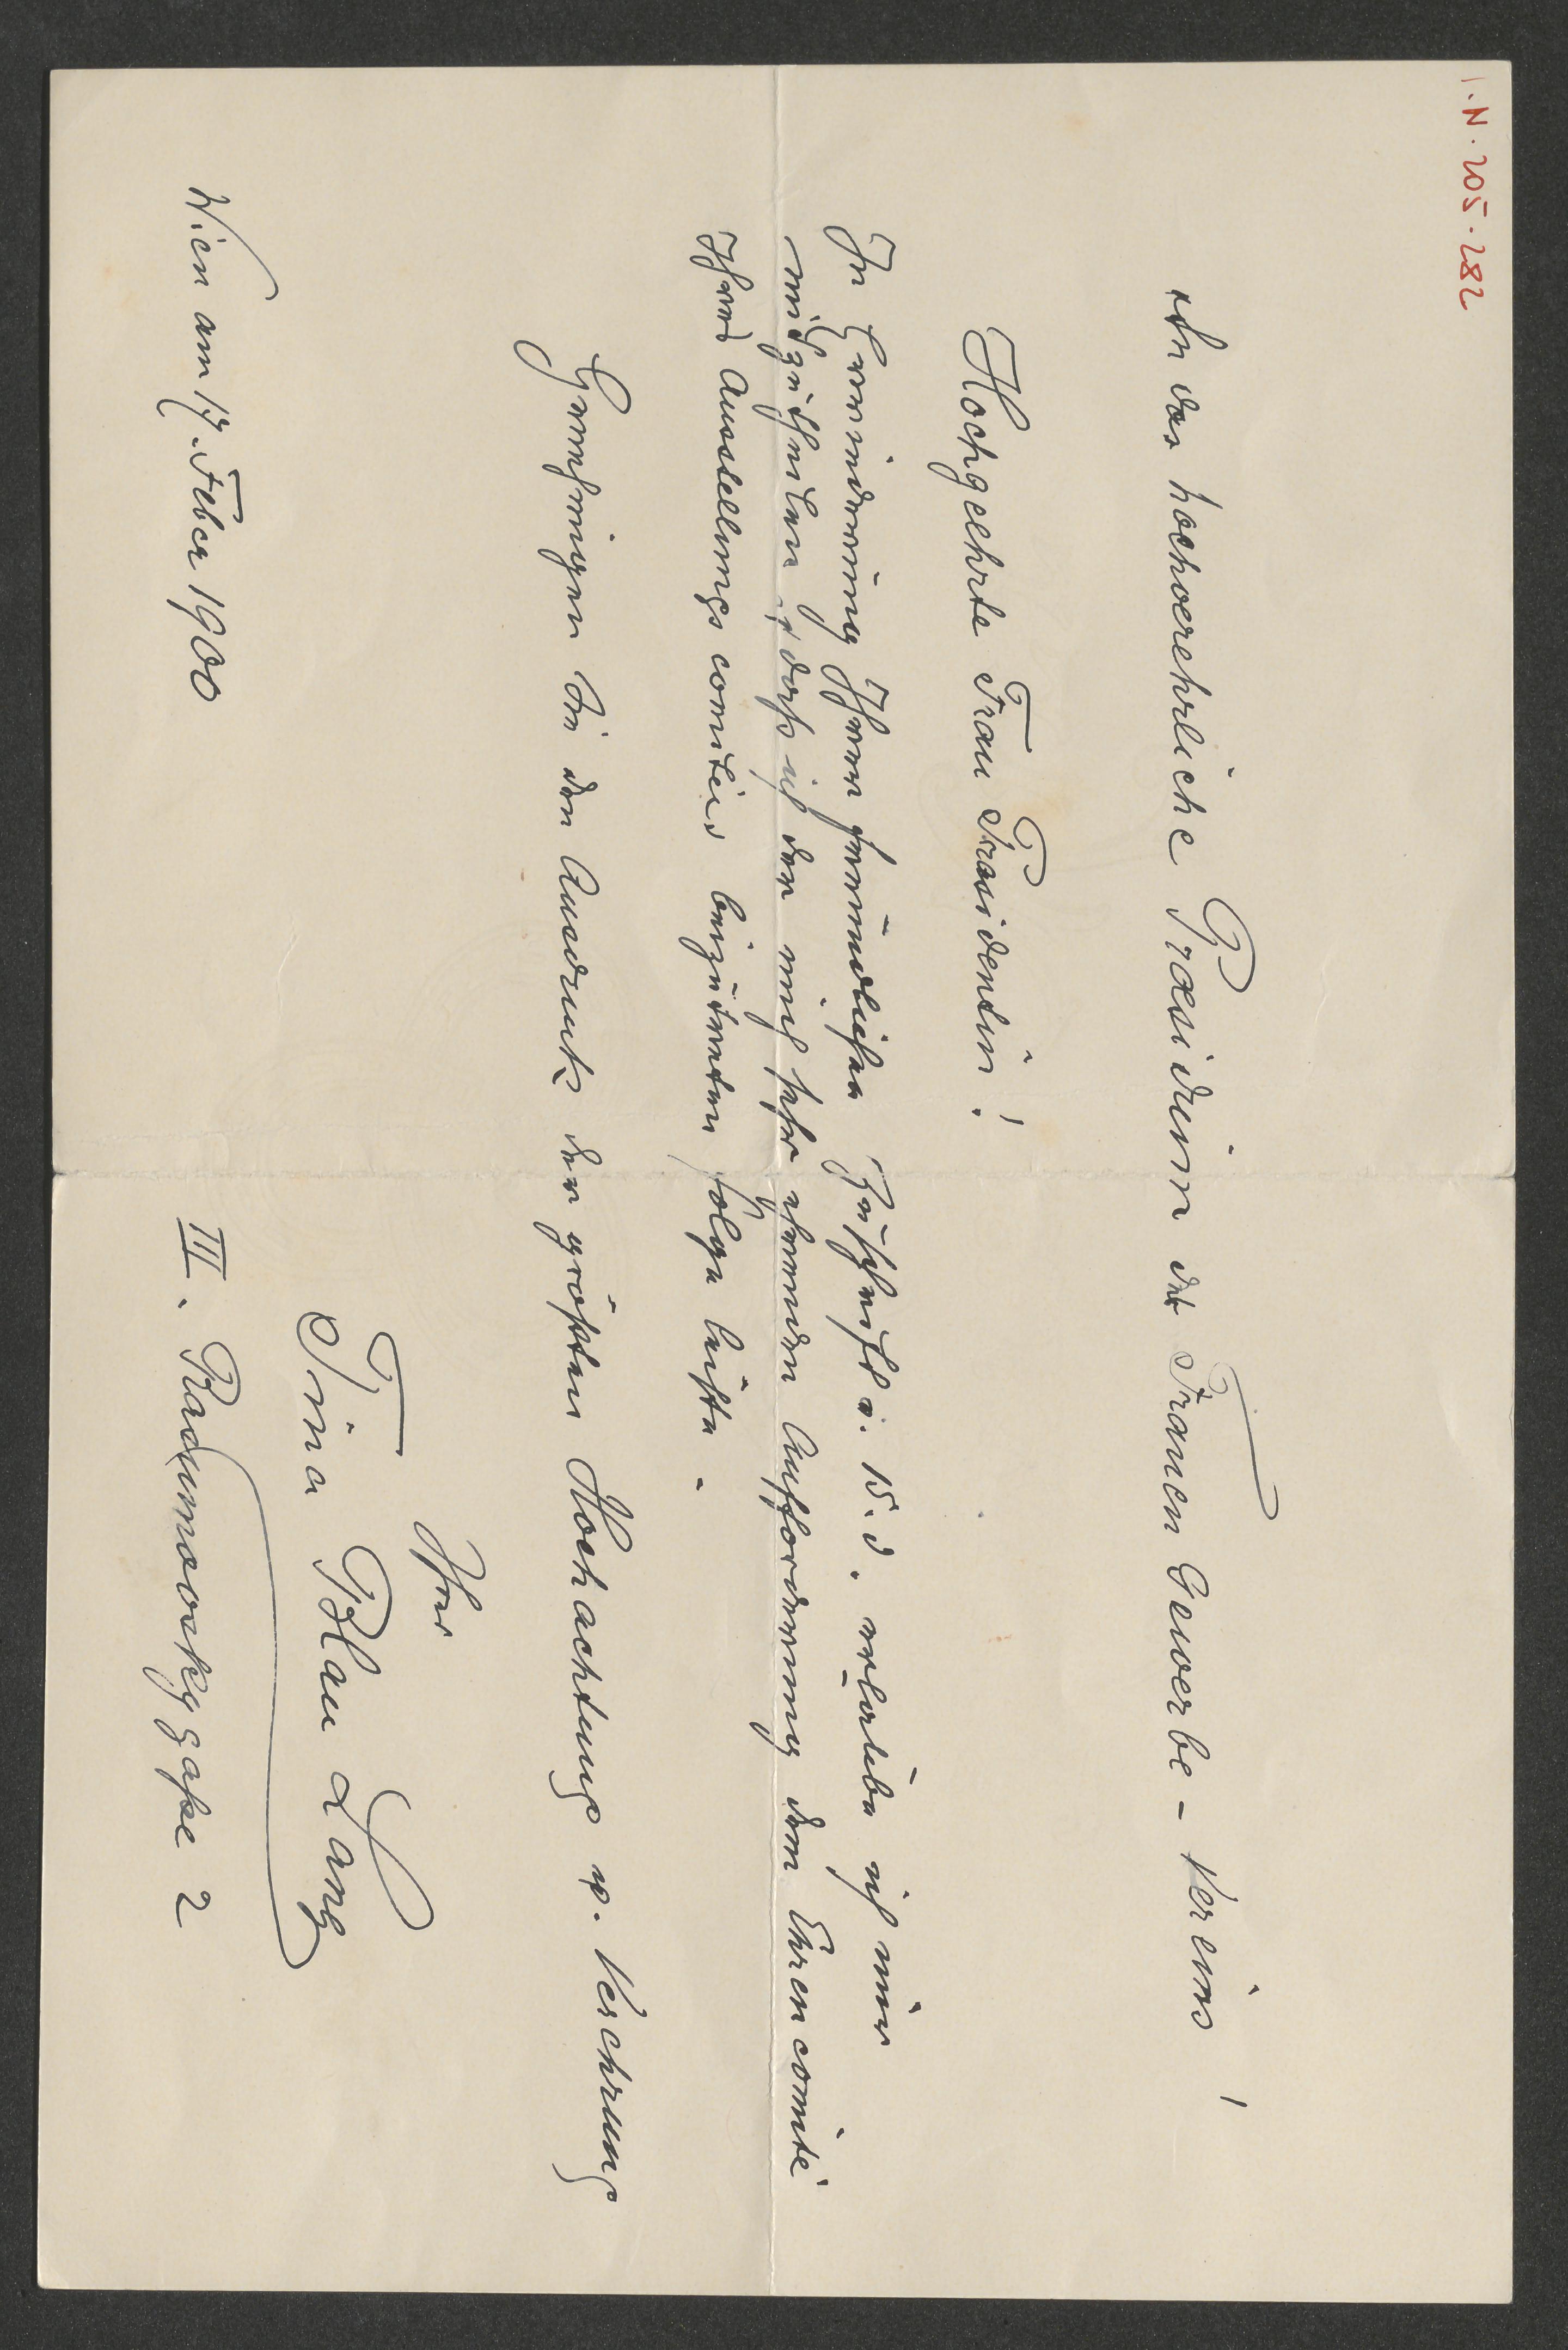 I.N. 205.282
An das hochverehrliche Praesidium des Frauen Gewerbe-Vereins!
Hochgeehrte Frau Präsidentin!
In Erwiderung Ihrer freundlichen Zuschrift v. 15. d. erlaube ich mir
mitzutheilen, daß ich der mich sehr ehrenden Aufforderung dem Ehrencomité
Ihres Ausstellungscomités beizutreten folge leiste.
Genehmigen Sie den Ausdruck der größten Hochachtung u. Verehrung
Ihrer
Tina Blau Lang
Wien am 17. Feber 1900
III. Rasumovskygaße 2